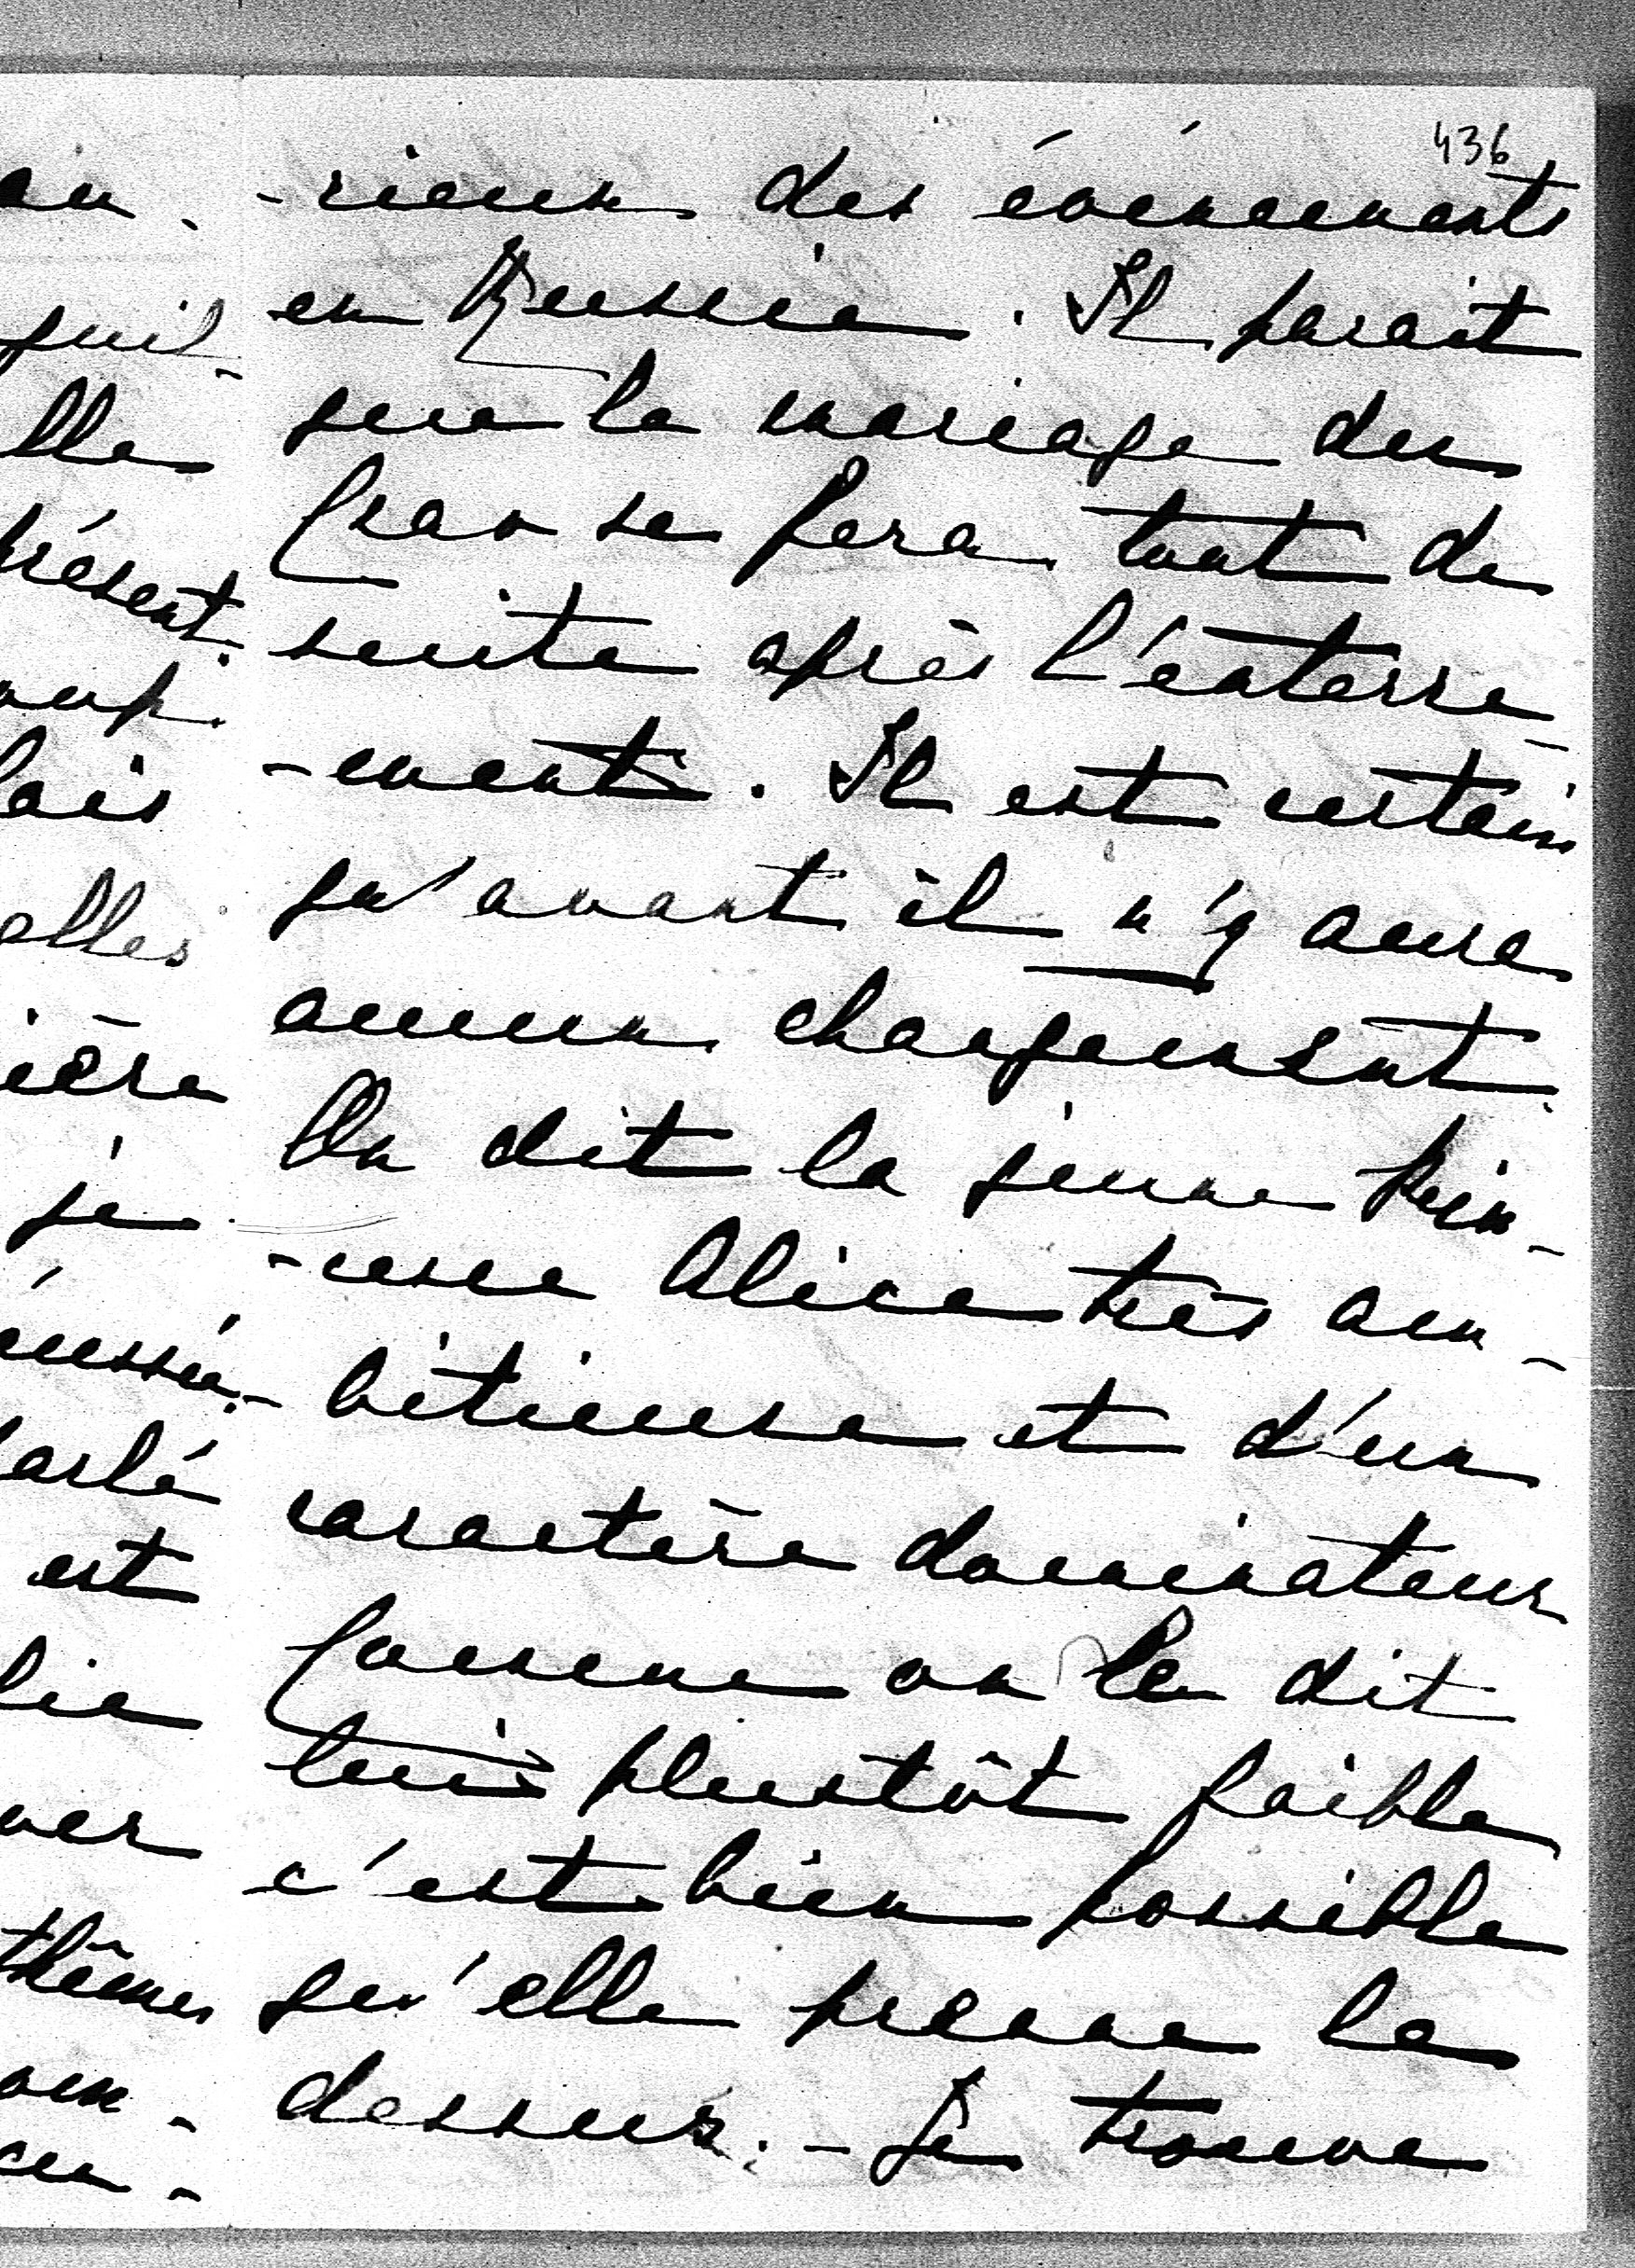 436
-rieux des événements
en Russie. Il parait
que le mariage du
se fera tout de
suite après l'enterre-
-ment. Il est certain
qu'avant il n'y aura
aucun changement.
On dit la jeune prin-
-cesse Alice très am-
-bitieuse et d'un
caractère dominateur
comme on le dit
lui plustôt faible
c'est bien possible
qu'elle prenne le
dessus. - Je trouve
quil-
lle
présent
lais
elles
ière
je
parlé
est
lie
ver
thêmes